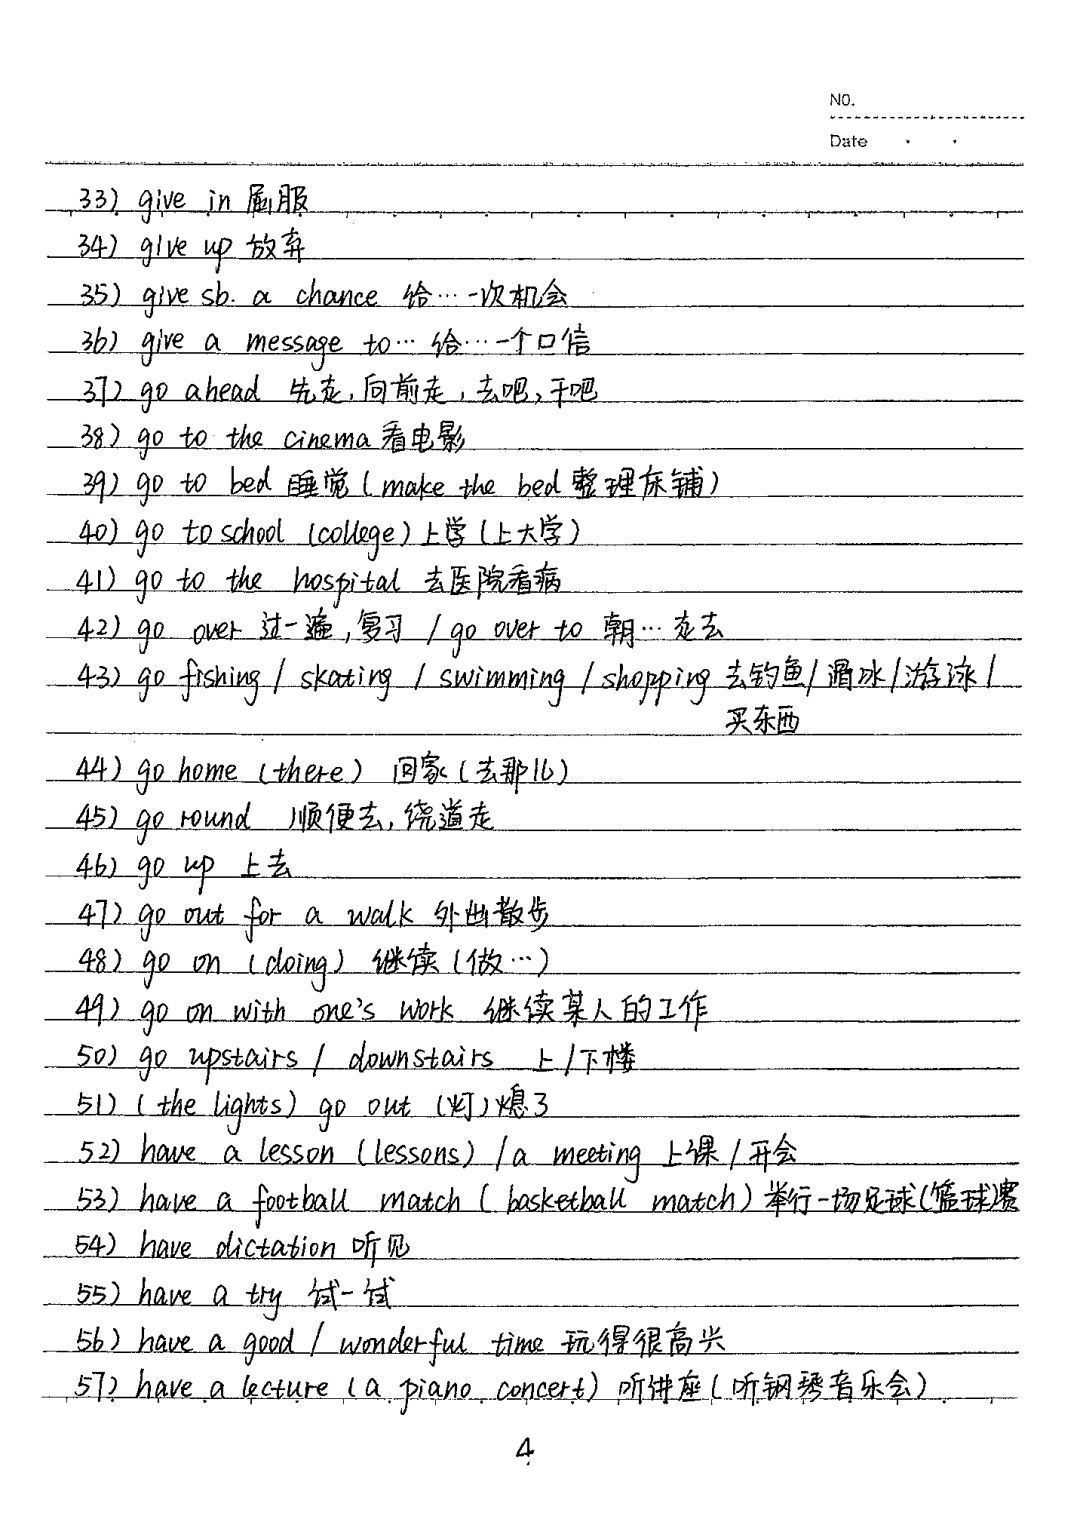 NO.
Date . .
33) give in 屈服
34) give up 放弃
35) give sb. a chance 给…一次机会
36) give a message to… 给…一个口信
37) go ahead 先走,向前走,去吧,干吧
38) go to the cinema 看电影
39) go to bed 睡觉(make the bed 整理床铺)
40) go to school (college) 上学(上大学)
41) go to the hospital 去医院看病
42) go over 过一遍,复习 / go over to 朝…走去
43) go fishing / skating / swimming / shopping 去钓鱼/滑冰/游泳/
买东西
44) go home (there) 回家(去那儿)
45) go round 顺便去,绕道走
46) go up 上去
47) go out for a walk 外出散步
48) go on (doing) 继续(做…)
49) go on with one's work 继续某人的工作
50) go upstairs / downstairs 上/下楼
51) (the lights) go out (灯)熄了
52) have a lesson (lessons) / a meeting 上课/开会
53) have a football match (basketball match) 举行一场足球(篮球)赛
54) have dictation 听见
55) have a try 试一试
56) have a good / wonderful time 玩得很高兴
57) have a lecture (a piano concert) 听讲座(听钢琴音乐会)
4